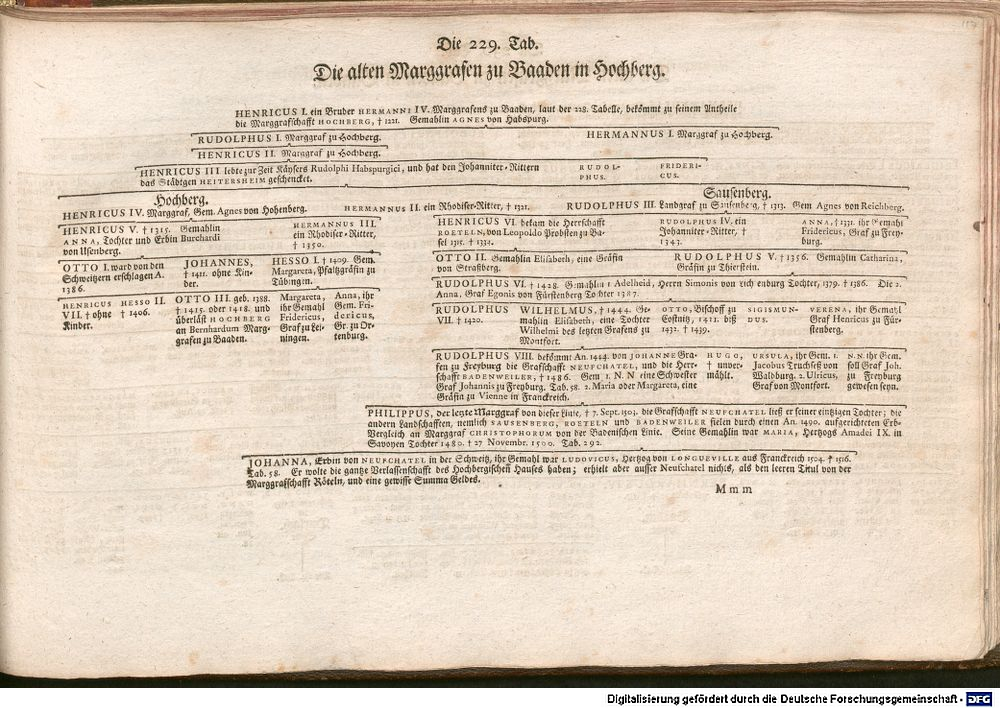 Die 229. Tab.
Die alten Marggrafen zu Baaden in Hochberg.
HENRICUS I. ein Bruder HERMANNI IV. Marggrafens zu Baaden, laut der 228. Tabelle, bekömmt zu seinem Antheile
die Marggraffschafft HOCHBERG, † 1221. Gemahlin AGNES von Habspurg.
RUDOLPHUS I. Marggraf zu Hochberg.
HERMANNUS I. Marggraf zu Hochberg.
HENRICUS II. Marggraf zu Hochberg.
HENRICUS III lebte zur Zeit Käysers Rudolphi Habspurgici, und hat den Johanniter-Rittern
das Städtgen HEITERSHEIM geschencket.
RUDOL-
PHUS.
FRIDERI-
CUS.
Hochberg.
HENRICUS IV. Marggraf, Gem. Agnes von Hohenberg.
HERMANNUS II. ein Rhodiser-Ritter, † 1321.
Sausenberg.
RUDOLPHUS III. Landgraf zu Sausenberg, † 1313. Gem Agnes von Reichberg.
HENRICUS V. † 1315. Gemahlin
ANNA, Tochter und Erbin Burchardi
von Usenberg.
HERMANNUS III.
ein Rhodiser-Ritter,
† 1350.
HENRICUS VI. bekam die Herrschafft
ROETELN, von Leopoldo Probsten zu Ba-
sel 1315. † 1332.
RUDOLPHUS IV. ein
Johanniter-Ritter, †
1343.
ANNA, † 1331. ihr Gemahl
Fridericus, Graf zu Frey-
burg.
OTTO I. ward von den
Schweitzern erschlagen A.
1386.
JOHANNES,
† 1411. ohne Kin-
der.
HESSO I. † 1409. Gem.
Margareta, Pfaltzgräfin zu
Tübingen.
OTTO II. Gemahlin Elisabeth, eine Gräfin
von Straßberg.
RUDOLPHUS V. † 1356. Gemahlin Catharina,
Gräfin zu Thierstein.
HENRICUS
VII. † ohne
Kinder.
HESSO II.
† 1406.
OTTO III. geb. 1388.
† 1415. oder 1418. und
überläst HOCHBERG
an Bernhardum Marg-
grafen zu Baaden.
Margareta,
ihr Gemahl
Fridericus,
Graf zu Lei-
ningen.
Anna, ihr
Gem. Fri-
dericus,
Gr. zu Or-
tenburg.
RUDOLPHUS VI. † 1428. Gemahlin 1 Adelheid, Herrn Simonis von Lichtenburg Tochter, 1379. † 1386. Die 2.
Anna, Graf Egonis von Fürstenberg Tochter 1387.
RUDOLPHUS
VII. † 1420.
WILHELMUS, † 1444. Ge-
mahlin Elisabeth, eine Tochter
Wilhelmi des letzten Grafens zu
Montfort.
OTTO, Bischoff zu
Costnitz, 1411. biß
1432. † 1439.
SIGISMUN-
DUS.
VERENA, ihr Gemahl
Graf Henricus zu Für-
stenberg.
RUDOLPHUS VIII. bekömmt An. 1444. von JOHANNE Gra-
fen zu Freyburg die Grafschafft NEUFCHATEL, und die Herr-
schafft BADENWEILER, † 1486. Gem 1. N.N eine Schwester
Graf Johannis zu Freyburg. Tab. 58. 2. Maria oder Margareta, eine
Gräfin zu Vienne in Franckreich.
HUGO,
† unver-
mählt.
URSULA, ihr Gem. 1.
Jacobus Truchseß von
Waldburg. 2. Ulricus,
Graf von Montfort.
N.N. ihr Gem.
soll Graf Joh.
zu Freyburg
gewesen seyn.
PHILIPPUS, der letzte Marggraf von dieser Linie, † 7. Sept. 1503. die Grafschafft NEUFCHATEL ließ er seiner eintzigen Tochter; die
andern Landschafften, nemlich SAUSENBERG, ROETELN und BADENWEILER fielen durch einen An. 1490. aufgerichteten Erb-
Vergleich an Marggraf CHRISTOPHORUM von der Badenischen Linie. Seine Gemahlin war MARIA, Hertzogs Amadei IX. in
Savoyen Tochter 1480. † 27 Novembr. 1500. Tab. 292.
JOHANNA, Erbin von NEUFCHATEL in der Schweitz, ihr Gemahl war LUDOVICUS, Hertzog von LONGUEVILLE aus Franckreich 1504. † 1516.
Tab. 58. Er wolte die gantze Verlassenschafft des Hochbergischen Hauses haben; erhielt aber ausser Neufchatel nichts, als den leeren Titul von der
Marggraffschafft Röteln, und eine gewisse Summa Geldes.
Mmm
Digitalisierung gefördert durch die Deutsche Forschungsgemeinschaft - DFG